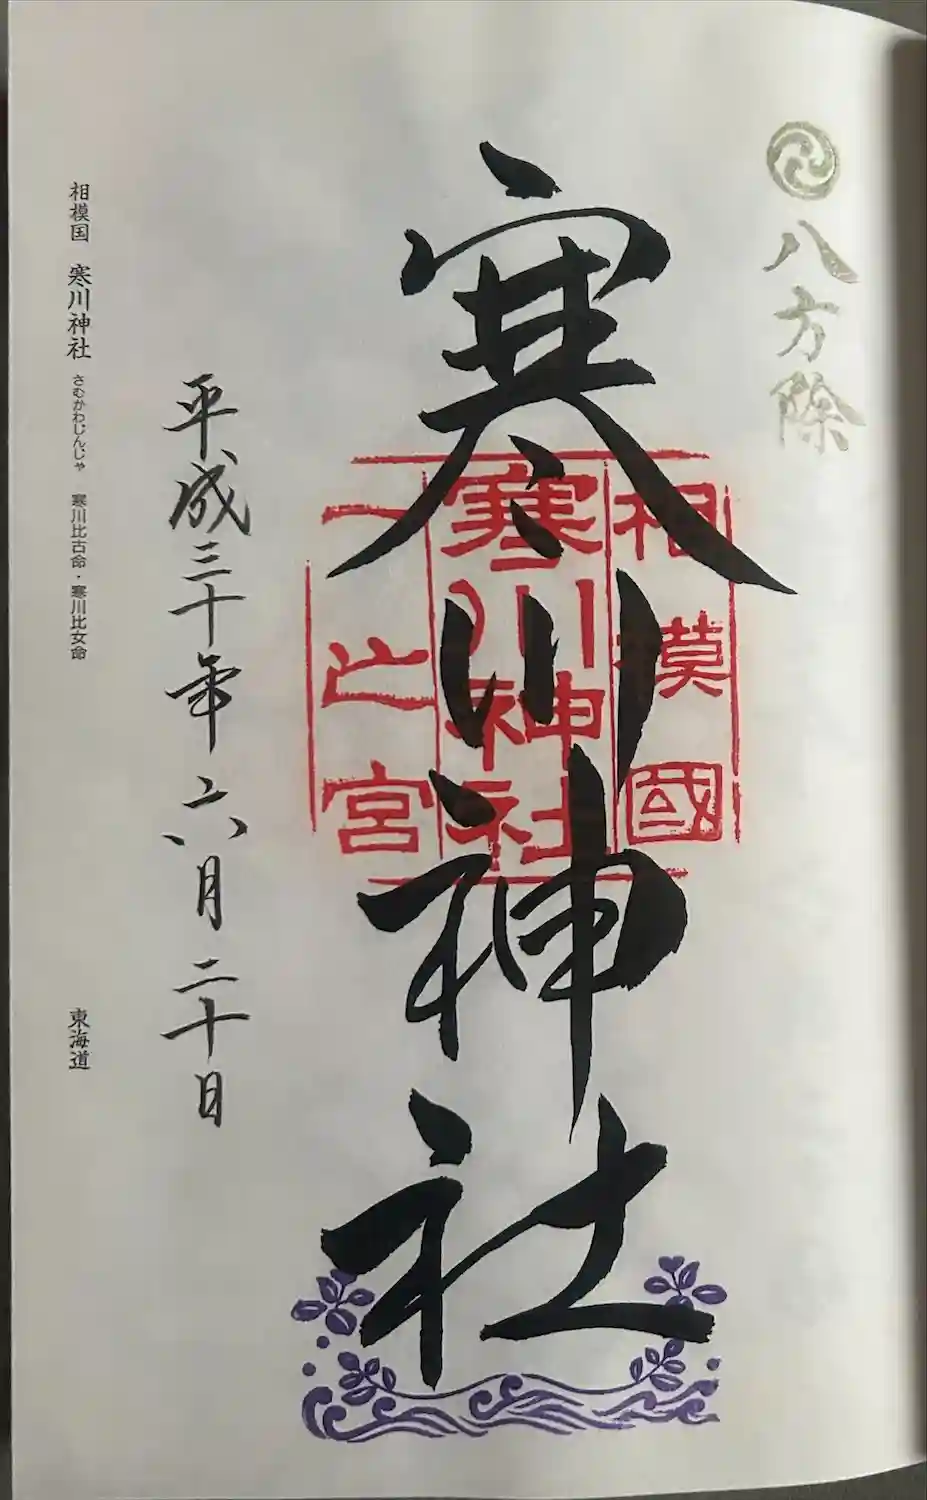 八方除
寒川神社
相模國
寒川神社
一之宮
平成三十年六月二十日
相模国 寒川神社 さむかわじんじゃ 寒川比古命・寒川比女命 東海道